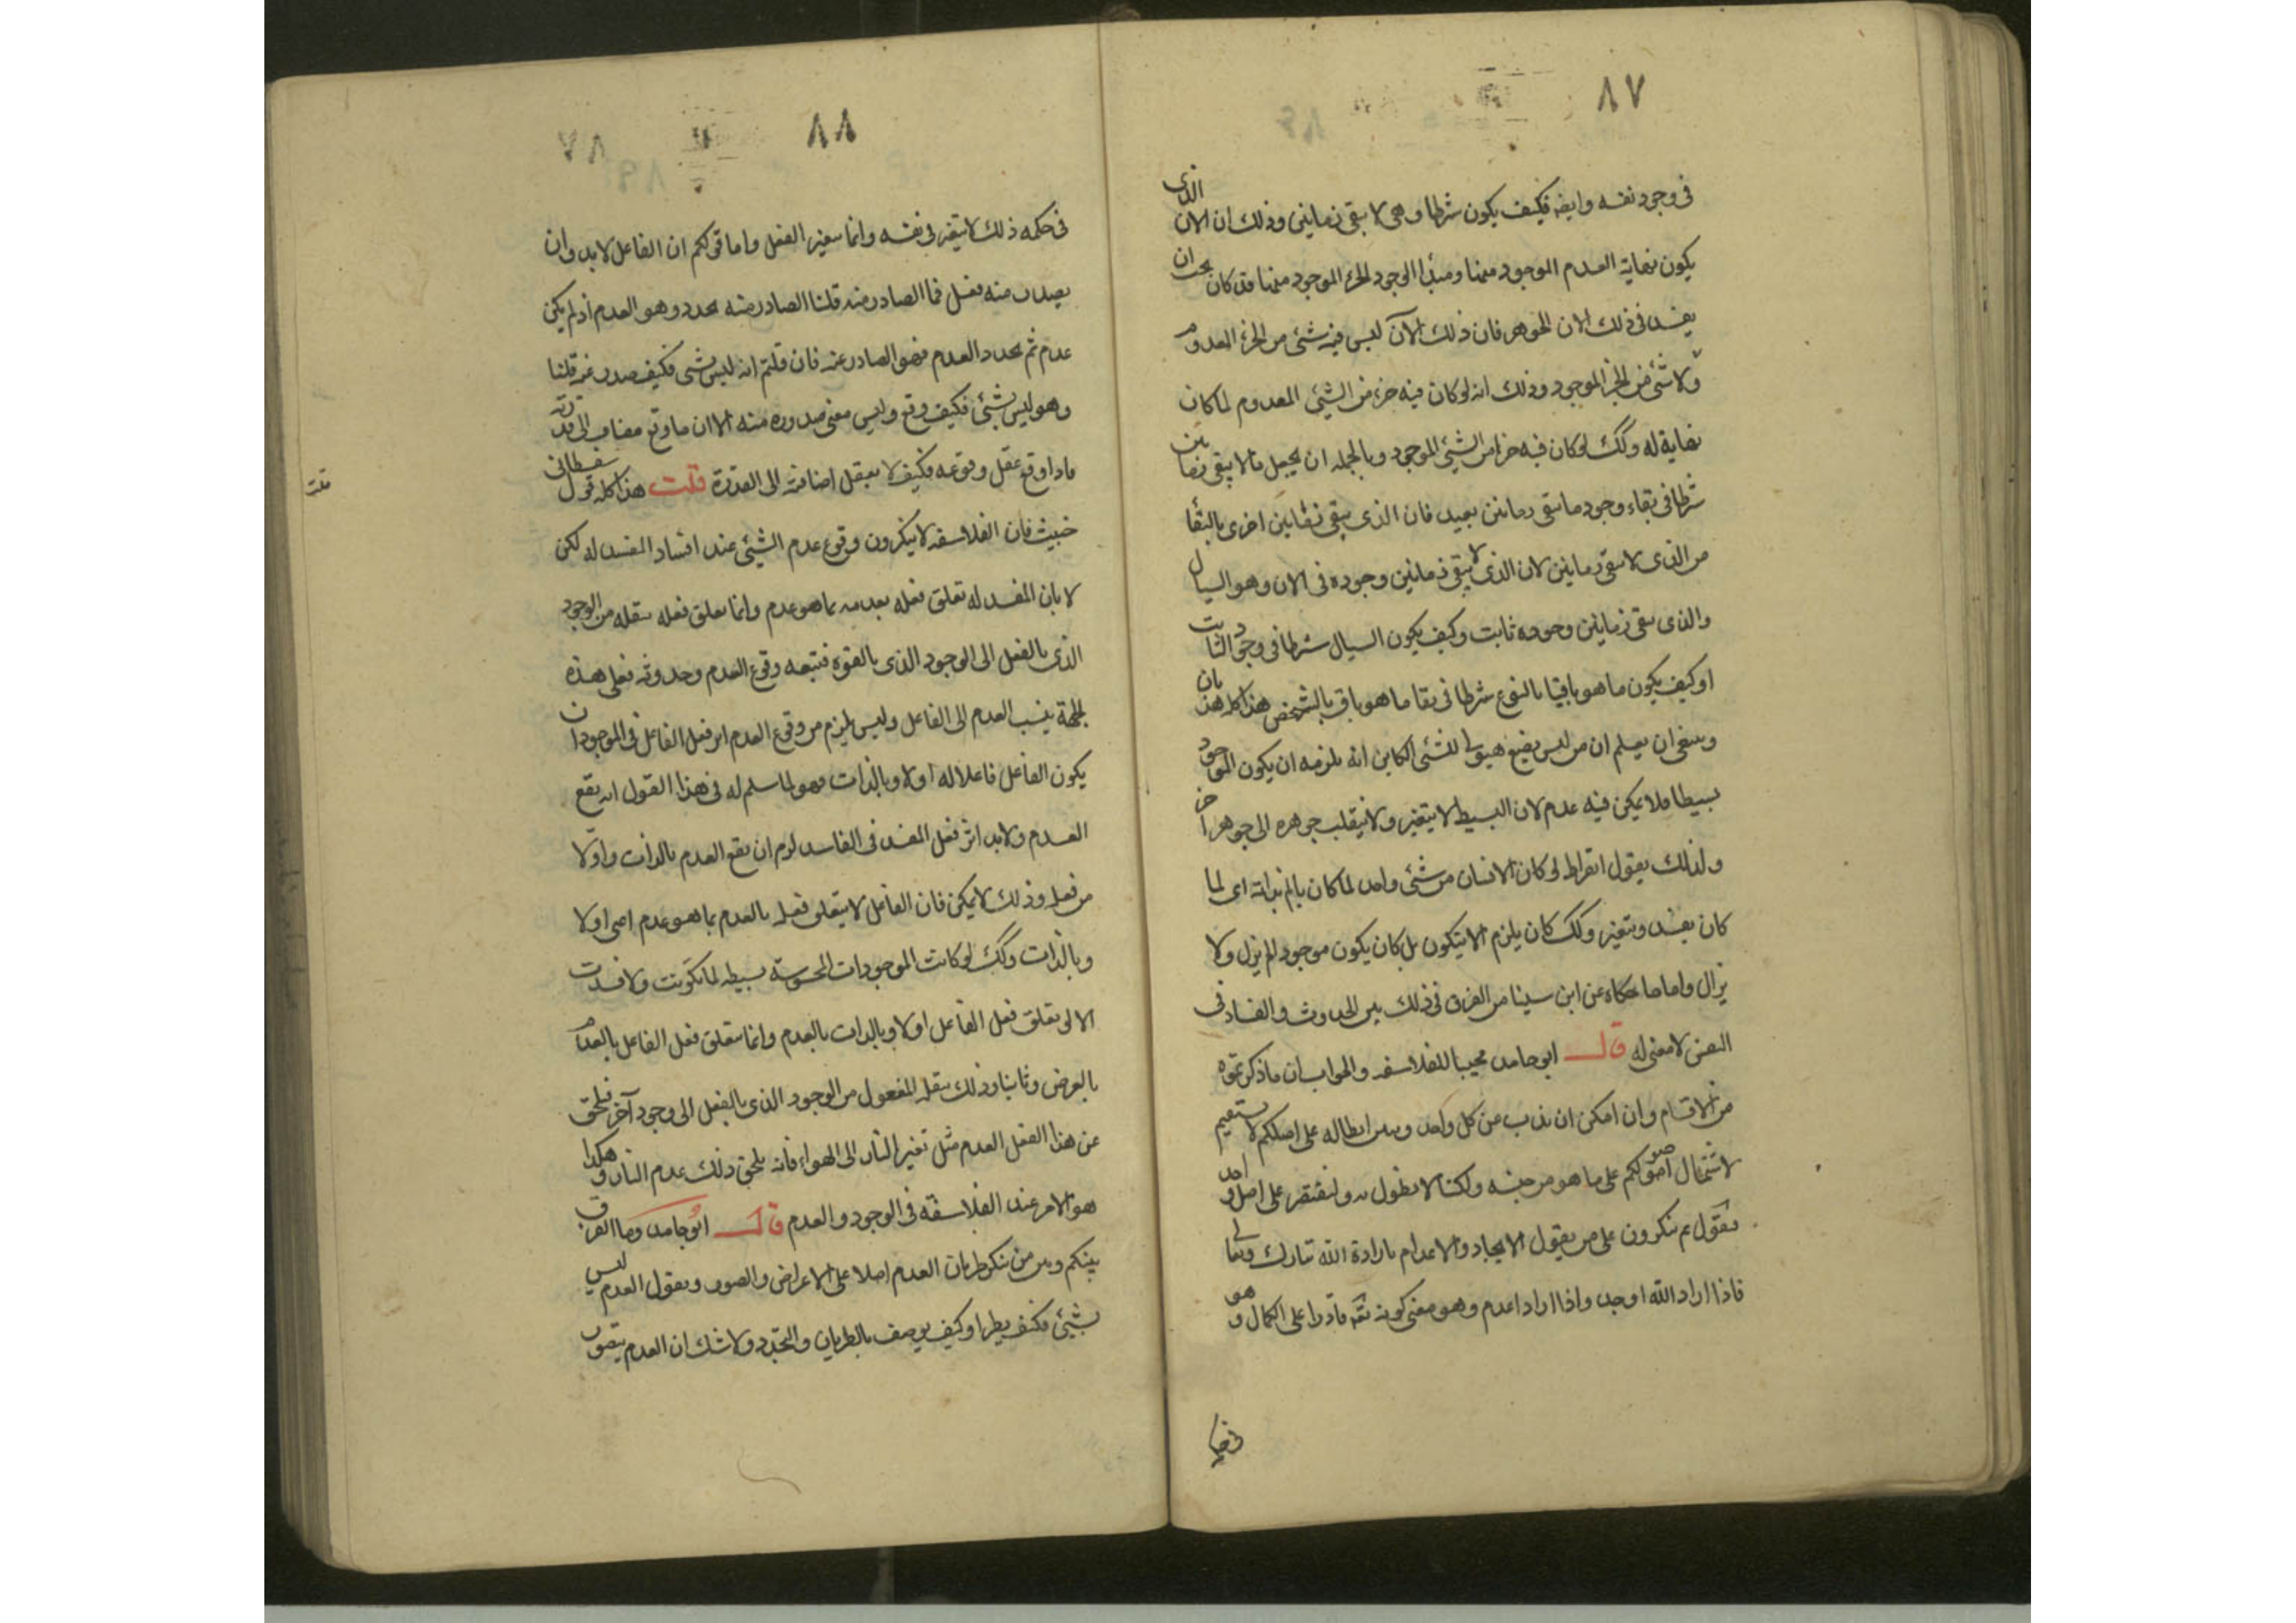 ٨٧
في وجود نفسه وايضه فكيف يكون شرطا وهي لا يبقى زمانين وذلك ان الان الذى
يكون نهاية العدم الموجود منها ومبدأ الوجود الجزء الموجود منها قد كان يجب ان
يفسد في ذلك الان الجوهر فان ذلك الآن ليس فيه شئ من الجزء المعدوم
ولا شئ من الجزء الموجود وذلك انه لو كان فيه جزء من الشيئ المعدوم لما كان
نهاية له وكك لو كان فيه جزا من الشيئ الموجود وبالجمله ان يجعل ما لا يبقى زمانين
شرطا في بقاء وجود ما يبقى زمانين بعيد فان الذى يبقى زمانين احرى بالبقا
من الذى لا يبقى زمانين لان الذى لا يبقى زمانين وجوده في الان وهو السيال
والذى يبقى زمانين وجوده ثابت وكيف يكون السيال شرطا في وجود الثابت
او كيف يكون ما هو باقيا بالنوع شرطا في بقا ما هو باق بالشخص هذا كله هذيان
وينبغى ان يعلم ان من ليس يضع هيولى للشئ الكاين انه يلزمه ان يكون الموجود
بسيطا فلا يمكن فيه عدم لان البسيط لا يتغير ولا ينقلب جوهره الى جوهر اخر
ولذلك يقول ابقراط لو كان الانسان من شئ واحد لما كان يالم بذاته اى لما
كان يفسد ويتغير وكك كان يلزم الا يتكون بل كان يكون موجود لم يزل ولا
يزال واما ما حكاه عن ابن سينا من الفرق في ذلك بين الحدوث والفساد في
النفس لا معنى له قال ابو حامد مجيبا للفلاسفه والجواب ان ما ذكرتموه
من الاقسام وان امكن ان نذب عن كل واحد ونبين ابطاله على اصلكم لا يستقيم
لاشتمال اصولكم على ما هو من جنسه ولكنا لا نطول به ولنقتصر على اصل واحد
ونقول بم تنكرون على من يقول الايجاد والاعدام بارادة الله تبارك وتعالى
فاذا اراد الله اوجد واذا اراد اعدم وهو معنى كونه تعه قادرا على الكمال وهو
في حكمه
٨٨
٧٨
في حكمه ذلك لا يتغير في نفسه وانما يتغير الفعل واما قولكم ان الفاعل لا بد وان
يصدر منه فعل فما الصادر منه قلنا الصادر منه تجدد وهو العدم اذ لم يكن
عدم ثم تجدد العدم فهو الصادر عنه فان قلتم انه ليس بشئ فكيف صدر عنه قلنا
وهو ليس بشئ فكيف وقع وليس معنى صدوره منه الا ان ما وقع مضاف الى قدرته
فاذا وقع عقل وقوعه فكيف لا يعقل اضافته الى القدرة قلت هذا كله قول سفسطانى
قلت
خبيث فان الفلاسفه لا ينكرون وقوع عدم الشيئ عند افساد المفسد له لكن
لا بان المفسد له تعلق فعله بعدمه بما هو عدم وانما تعلق فعله بنقله من الوجود
الذى بالفعل الى الوجود الذى بالقوه فيتبعه وقوع العدم وحدوثه فعلى هذه
الجهة ينسب العدم الى الفاعل وليس يلزم من وقوع العدم اثر فعل الفاعل في الموجود ان
يكون الفاعل فاعلا له اولا وبالذات فهو لما سلم له في هذا القول انه يقع
العدم ولا بد اثر فعل المفسد في الفاسد لزم ان يقع العدم بالذات واولا
من فعله وذلك لا يمكن فان الفاعل لا يتعلق فعله بالعدم بما هو عدم اعنى اولا
وبالذات وكك لو كانت الموجودات المحسوسة بسيطه لما تكونت ولا فسدت
الا لو تعلق فعل الفاعل اولا وبالذات بالعدم وانما يتعلق فعل الفاعل بالعدم
بالعرض وثانيا وذلك بنقله المفعول من الوجود الذى بالفعل الى وجود آخر فيلحق
عن هذا الفعل العدم مثل تغير النار الى الهواء فانه يلحق ذلك عدم النار وهكذا
هو الامر عند الفلاسفه في الوجود والعدم قال ابو حامد وما الفرق
بينكم وبين من ينكر طريان العدم اصلا على الاعراض والصور ويقول العدم ليس
بشيئ فكيف يطرا وكيف يوصف بالطريان والتجدد ولا شك ان العدم يتصور